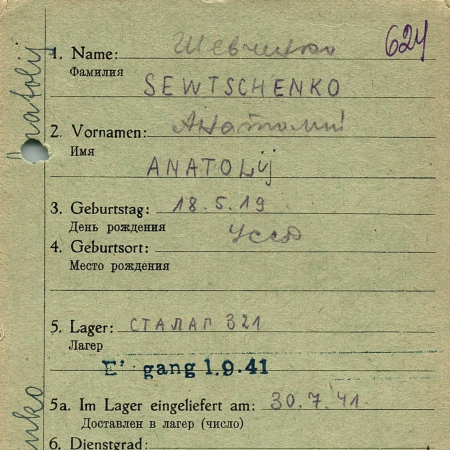 1. Name: Шевченко 624
Фамилия
SEWTSCHENKO
2. Vornamen: Анатолий
Имя
ANATOLij
3. Geburtstag: 18.5.19
День рождения
4. Geburtsort:
Место рождения
5. Lager: СТАЛАГ 321
Лагер
E' gang 1.9.41
5a. Im Lager eingeliefert am: 30.7.41.
Доставлен в лагер (число)
6. Dienstgrad:
natolij
nko